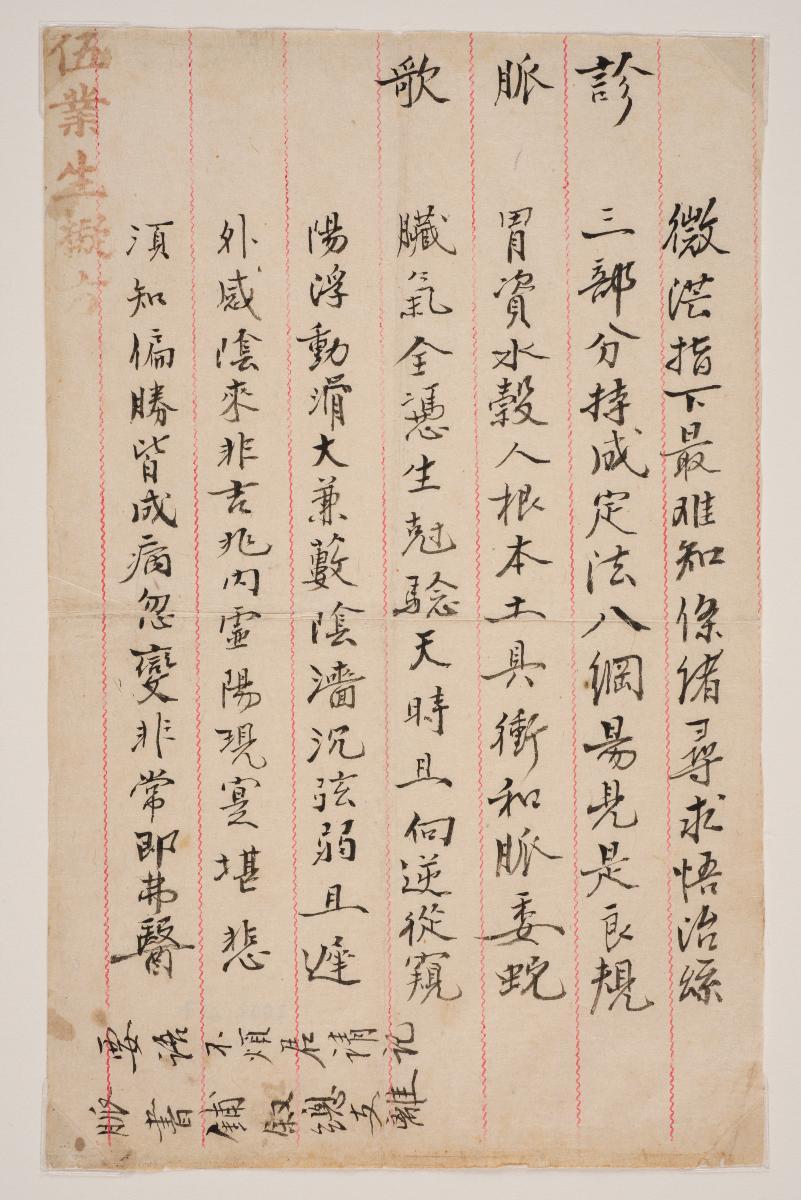 診脈歌
微茫指下最难知條緒尋求悟治絲
三部分持成定法八綱易見是良規
胃資水穀人根本土具衝和脈委蛇
臟氣全憑生尅驗天時且向逆從窺
陽浮動滑大兼藪陰濇沉弦弱且遲
外感陰來非吉兆内虛陽現寔堪悲
須知偏勝皆成病忽變非常即弗醫
要語不煩君請記
脈書鋪叙總支離
伍業生擬方